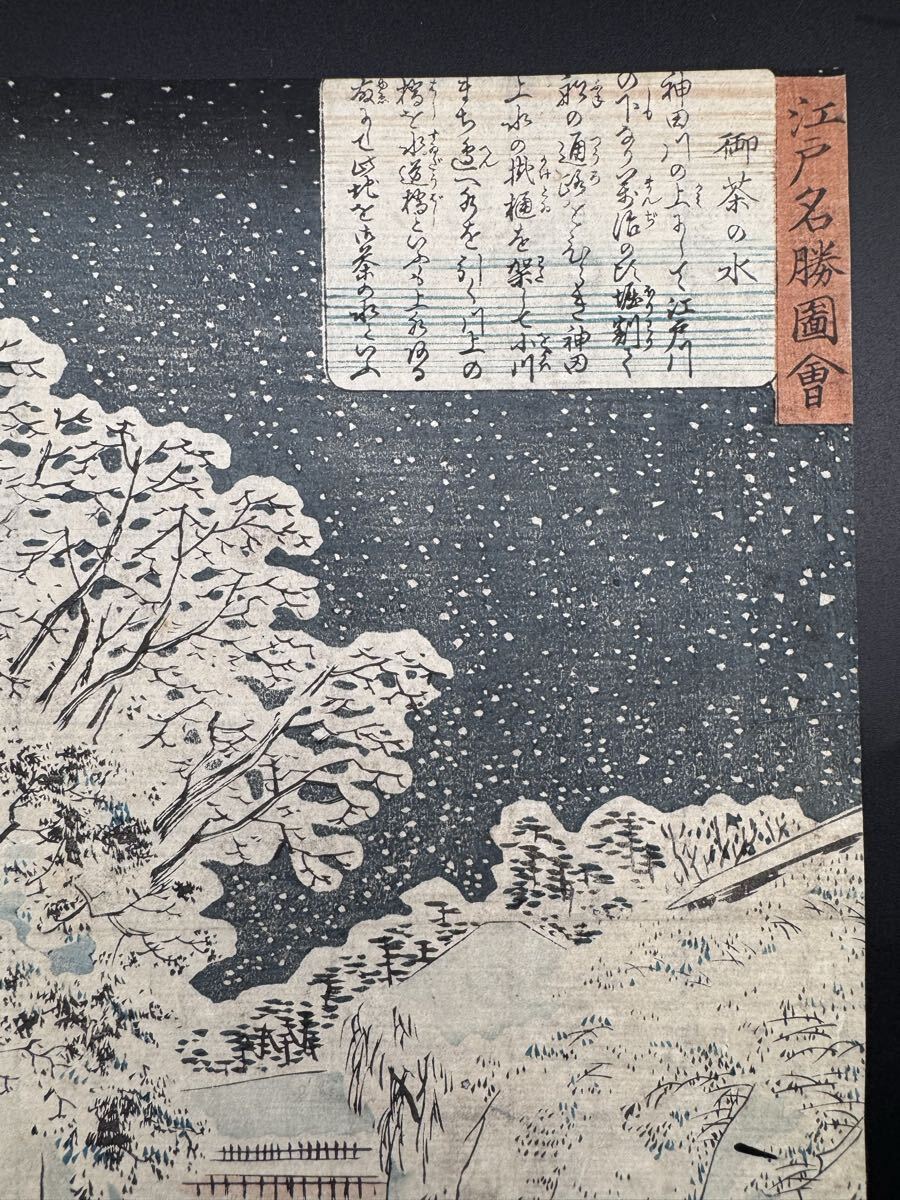 江戸名勝圖會
御茶の水
神田川の上にして江戸川
の下なり万治の頃堀割て
船の通路をひらき神田
上水の掛樋を架して小川
まち辺へ水を引く川上の
橋を水道橋といふも上水ある
故にて此地を御茶の水といふ